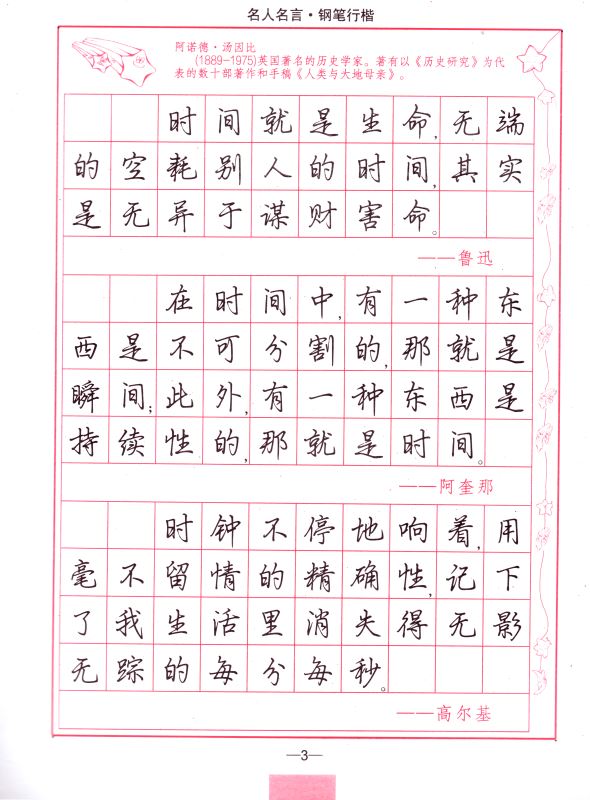 名人名言·钢笔行楷
阿诺德·汤因比
(1889-1975)英国著名的历史学家。著有以《历史研究》为代
表的数十部著作和手稿《人类与大地母亲》。
时间就是生命,无端
的空耗别人的时间,其实
是无异于谋财害命。
——鲁迅
在时间中,有一种东
西是不可分割的,那就是
瞬间;此外,有一种东西是
持续性的,那就是时间。
——阿奎那
时钟不停地响着,用
毫不留情的精确性,记下
了我生活里消失得无影
无踪的每分每秒。
——高尔基
—3—